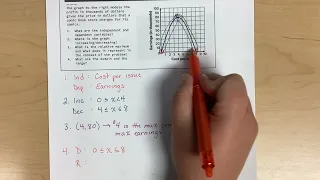 The graph to the right models the
profit in thousands of dollars
given the price in dollars that a
comic book store charges for its
comics.
1. What are the independent and
dependent variables?
2. Where is the graph
increasing/decreasing?
3. What is the relative maximum
and what does it represent in
the context of the problem?
4. What are the domain and the
range?
Earnings (in thousands)
100
90
80
70
60
50
40
30
20
10
Cost per
1. Ind: Cost per issue
Dep: Earnings
2. Inc: 0≤x<4
Dec: 4≤x≤8
3. (4,80) → $4 is the max
max earnings
4. D: 0≤x≤8
R: